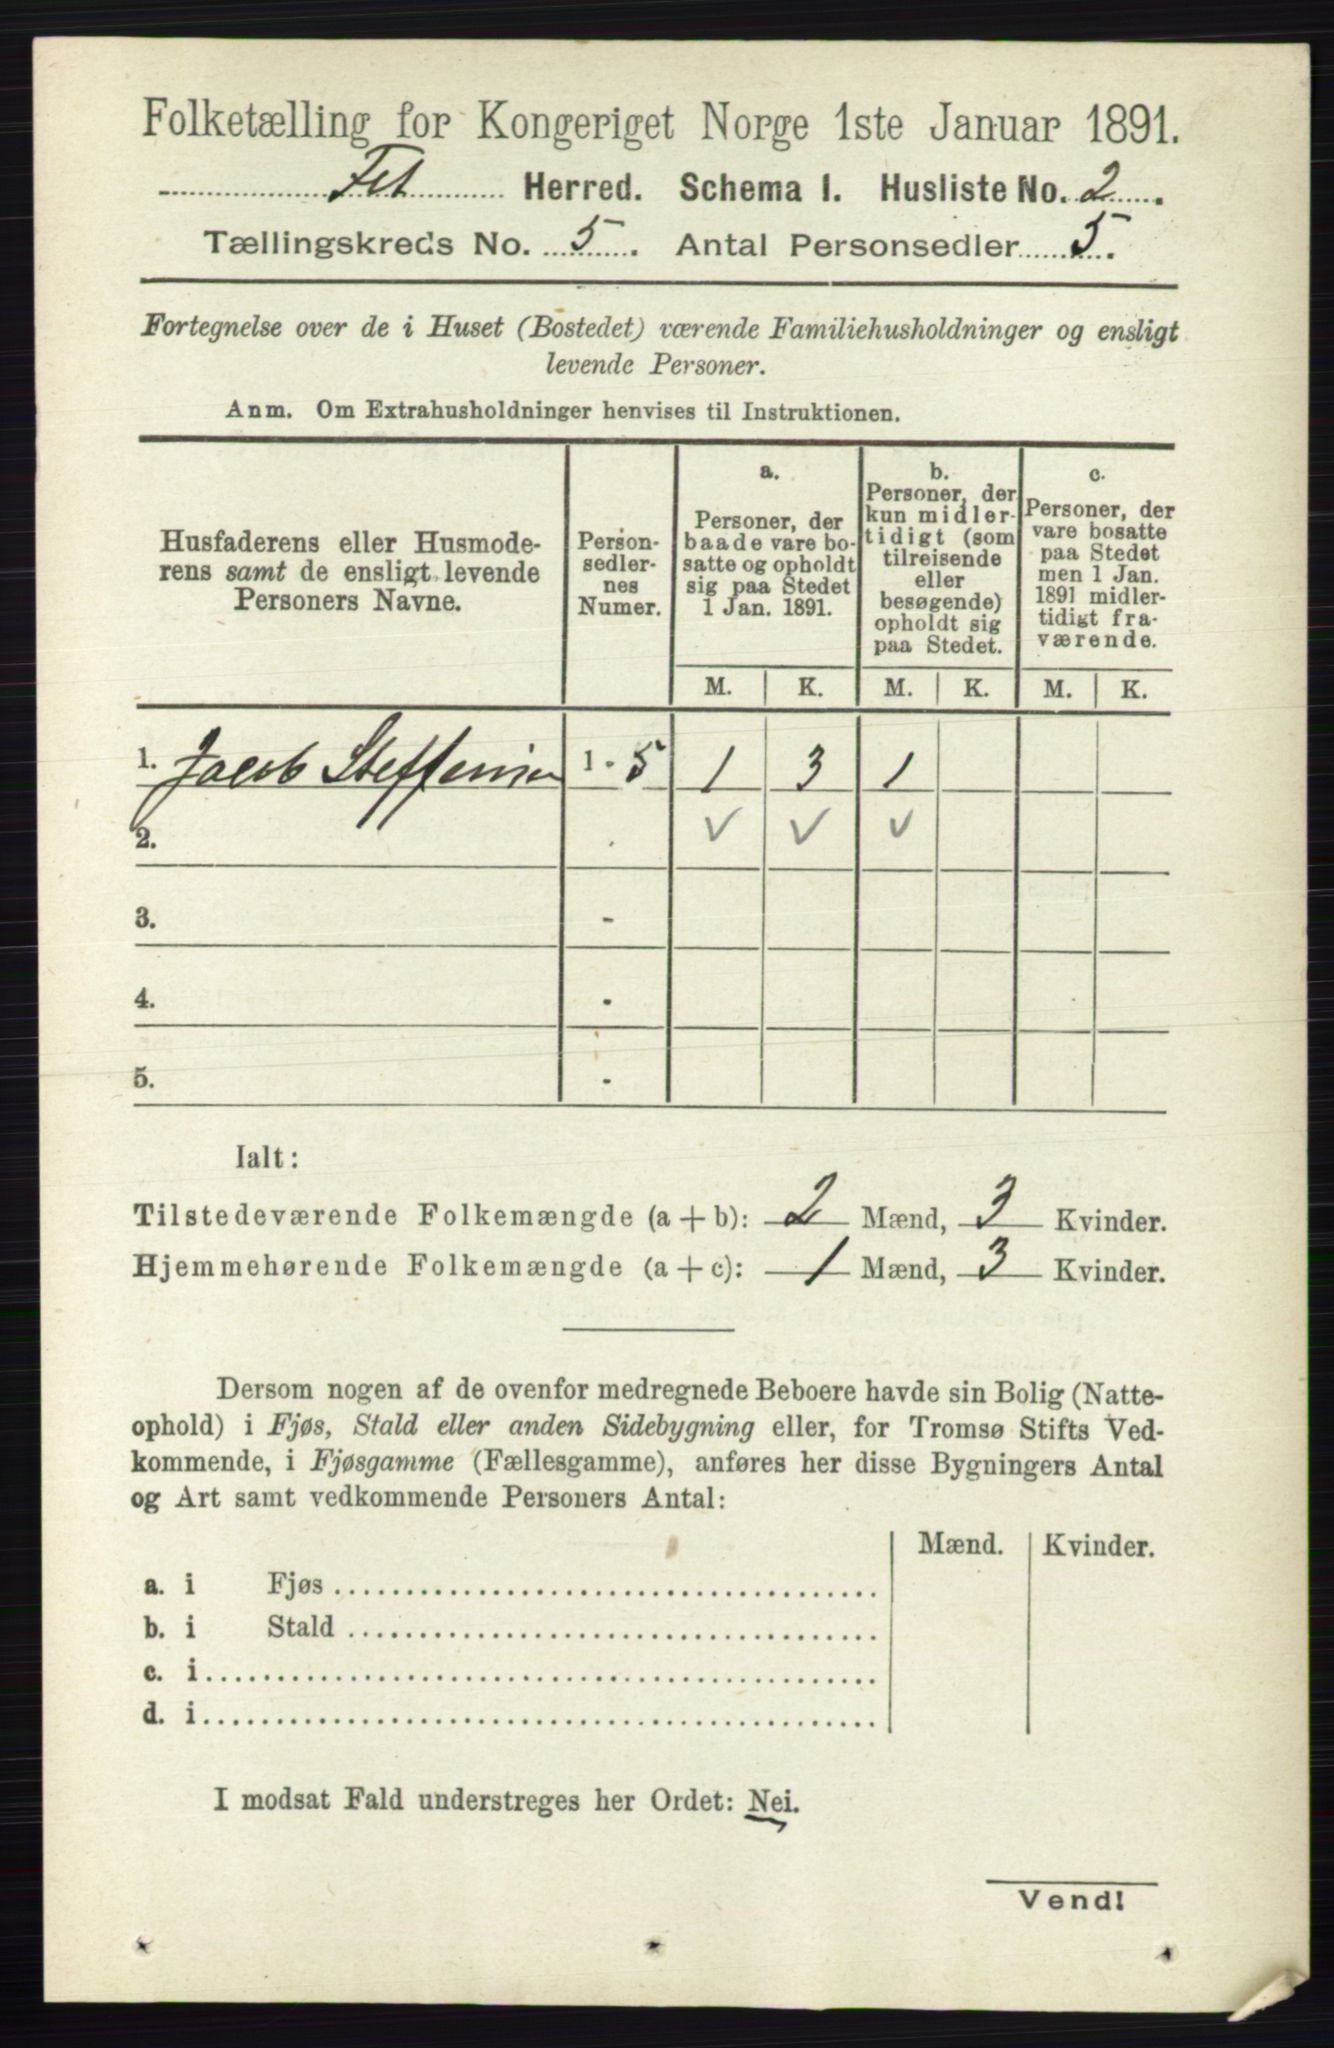 Folketælling for Kongeriget Norge 1ste Januar 1891.
Fet Herred. Schema 1. Husliste No. 2.
Tællingskreds No. 5. Antal Personsedler 5.
Fortegnelse over de i Huset (Bostedet) værende Familiehusholdninger og ensligt
levende Personer.
Anm. Om Extrahusholdninger henvises til Instruktionen.
Husfaderens eller Husmode-
rens samt de ensligt levende
Personers Navne.
Person-
sedler-
nes
Numer.
a.
Personer, der
baade vare bo-
satte og opholdt
sig paa Stedet
1 Jan. 1891.
b.
Personer, der
kun midler-
tidigt (som
tilreisende
eller
besøgende)
opholdt sig
paa Stedet.
c.
Personer, der
vare bosatte
paa Stedet
men 1 Jan.
1891 midler-
tidigt fra-
værende.
M. K. M. K. M. K.
1. Jacob Steffensen 1 - 5 1 3 1
2. - ✓ ✓ ✓
3. -
4. -
5. -
Ialt:
Tilstedeværende Folkemængde (a + b): 2 Mænd, 3 Kvinder.
Hjemmehørende Folkemængde (a + c): 1 Mænd, 3 Kvinder.
Dersom nogen af de ovenfor medregnede Beboere havde sin Bolig (Natte-
ophold) i Fjøs, Stald eller anden Sidebygning eller, for Tromsø Stifts Ved-
kommende, i Fjøsgamme (Fællesgamme), anføres her disse Bygningers Antal
og Art samt vedkommende Personers Antal:
Mænd. Kvinder.
a. i Fjøs
b. i Stald
c. i
d. i
I modsat Fald understreges her Ordet: Nei.
Vend!